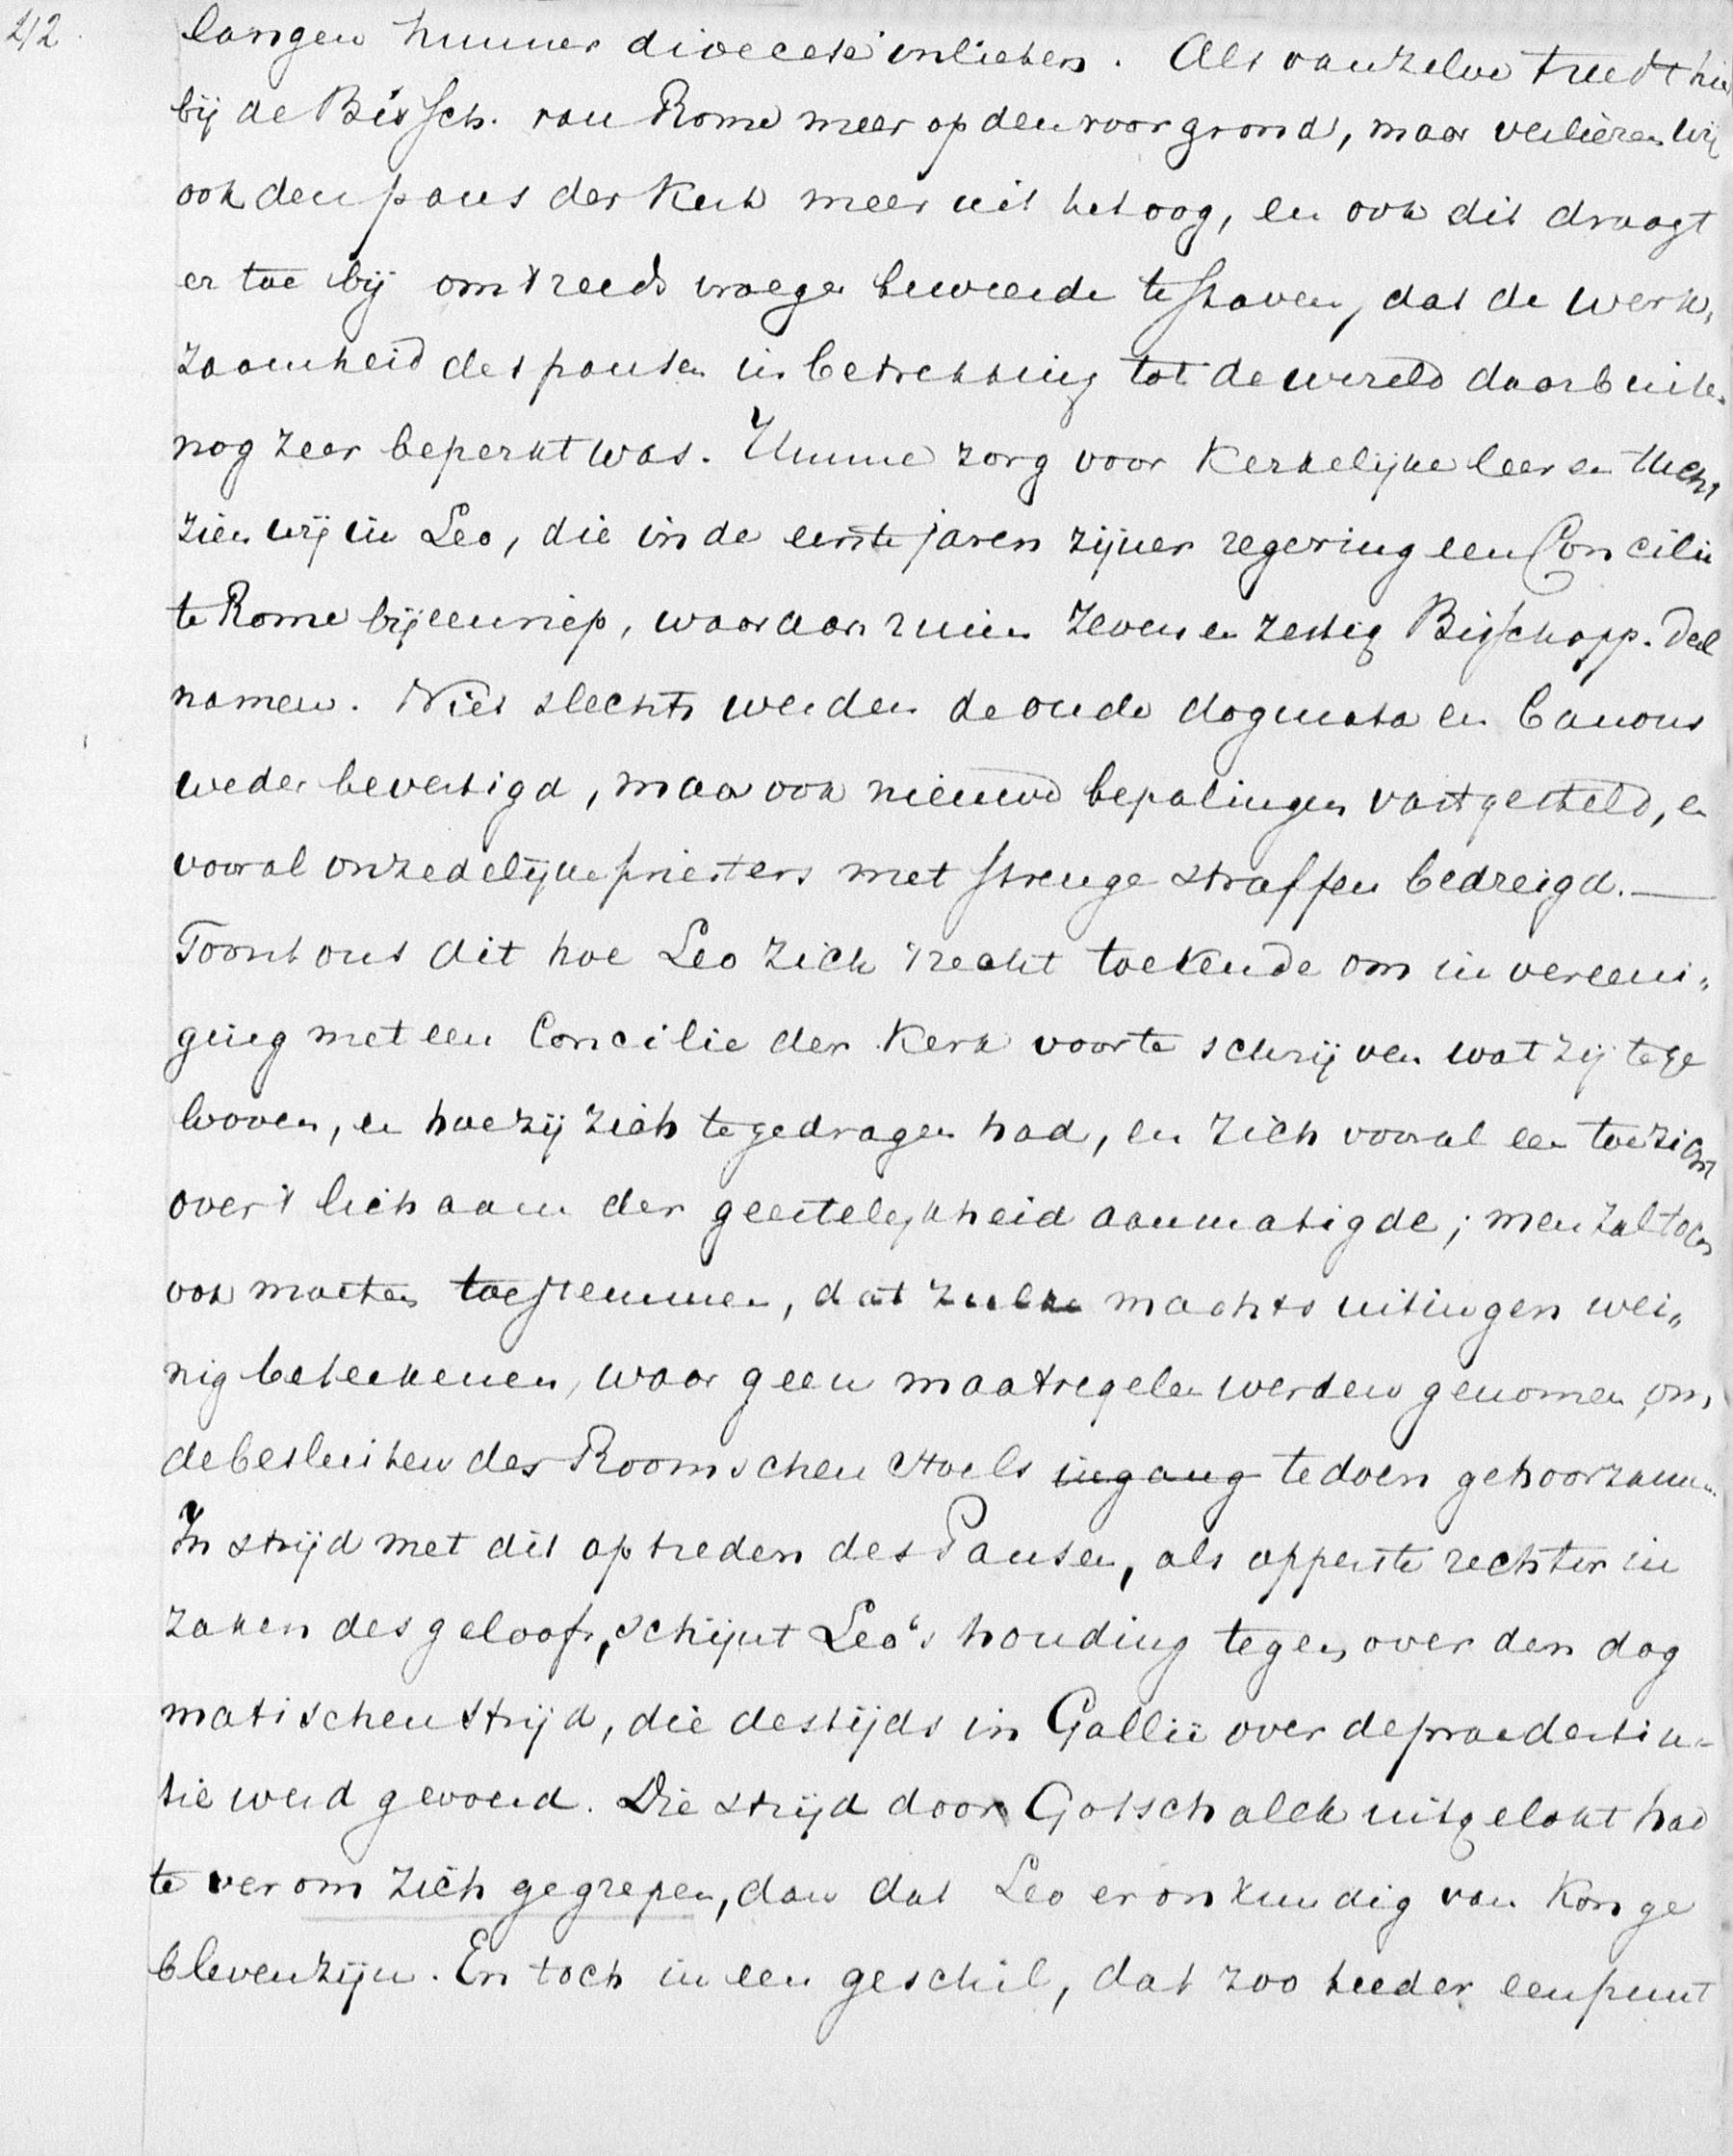 212.
langen hunner dioecese inlieten. Als van zelve treedt hier
bij de Bissch. van Rome meer op den voorgrond, maar verliezen wij
ook den paus der Kerk meer uit het oog, en ook dit draagt
er toe bij om 't reeds vroeger beweerde te staven, dat de werk„
zaamheid des pausen in betrekking tot de wereld daarbuiten
nog zeer beperkt was. Hunne zorg voor Kerkelijke leer en tucht
zien wij in Leo, die in de eerste jaren zijner regering een Concilie
te Rome bijeenriep, waaraan ruim zeven en zestig Bisschopp. deel
namen. Niet slechts werden de oude dogmata en Canons
weder bevestigd, maar ook nieuwe bepalingen vastgesteld, en
vooral onzedelijke priesters met strenge straffen bedreigd. —
Toont ons dit hoe Leo zich 't recht toekende om in vereeni„
ging met een Concilie der Kerk voor te schrijven wat zij te ge
looven, en hoe zij zich te gedragen had, en zich vooral een toezicht
over 't lichaam der geestelijkheid aanmatigde; men zal toch
ook moeten toestemmen, dat zulke machtsuitingen wei„
nig beteekenen, waar geen maatregelen werden genomen om
de besluiten des Roomschen stoels ingang te doen gehoorzamen.
In strijd met dit optreden des Pausen, als opperste rechter in
zaken des geloofs, schijnt Leo's houding tegenover den dog
matischen strijd, die destijds in Gallië over de praedestina-
tie werd gevoerd. Die strijd door Gotschalck uitgelokt had
te ver om zich gegrepen, dan dat Leo er onkundig van kon ge
bleven zijn. En toch in een geschil, dat zoo teeder een punt